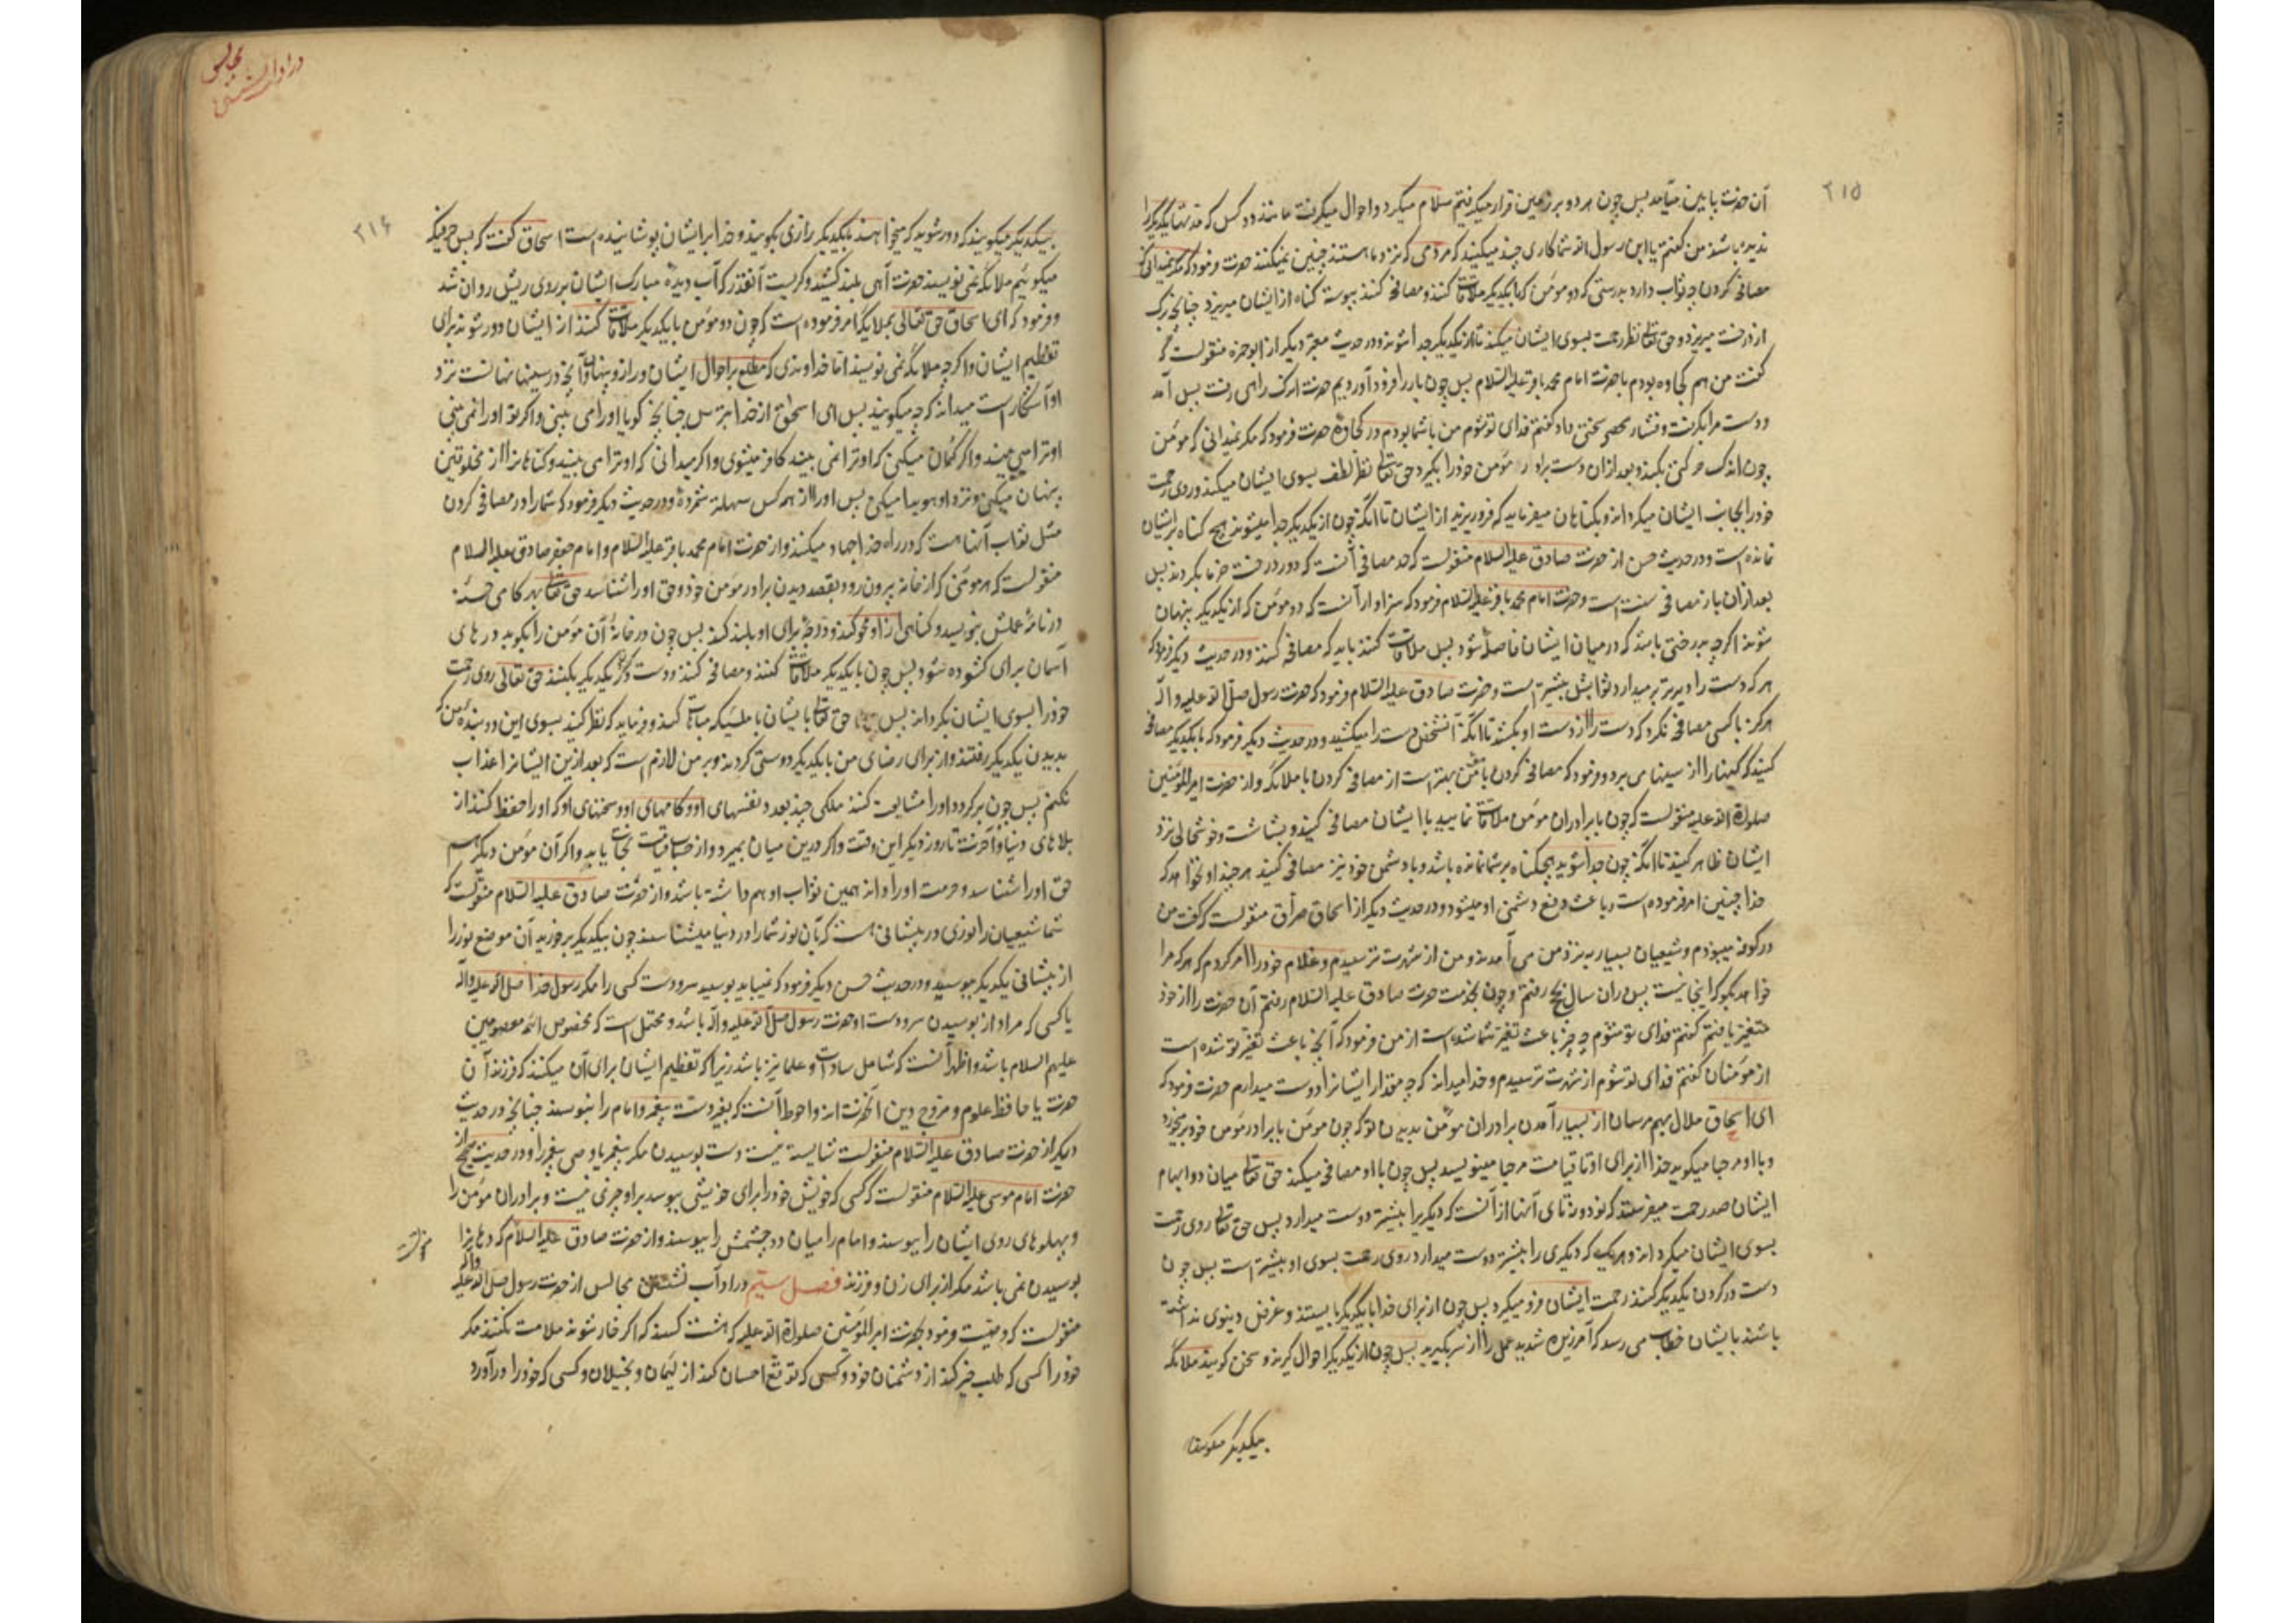 ۲۱۵
آن حضرت پایین میآمد پس چون هر دو بر زمین قرار میکرفتیم سلام میکرد و احوال میکرفت مانند دو کس که مدتها یکدیکر را
ندیده باشند من کفتم یا ابن رسول الله شما کاری چند میکنید که مردمی که نزد ما هستند چنین نمیکنند حضرت فرمود که مکر نمیدانی که
مصافحه کردن چه ثواب دارد بدرستی که دو مؤمن که با یکدیکر ملاقات کنند و مصافحه کنند پیوسته کناه از ایشان میریزد چنانچه برک
از درخت میریزد و حق تعالی نظر رحمت بسوی ایشان میکند تا از یکدیکر جدا شوند و در حدیث معتبر دیکر از ابو حمزه منقولست که
کفت من هم کجاوه بودم با حضرت امام محمد باقر علیه السلام پس چون بار را فرود آوردیم حضرت اندک راهی رفت پس آمد
و دست مرا بکرفت و فشار سختی داد کفتم فدای تو شوم من با شما بودم در کجاوه حضرت فرمود که مکر نمیدانی که مؤمن
چون اندک حرکتی بکند و بعد از آن دست برادر مؤمن خود را بکیرد حق تعالی نظر لطف بسوی ایشان میکند و روی رحمت
خود را بجانب ایشان میکرداند و بکناهان میفرماید که فرو ریزید از ایشان تا آنکه چون از یکدیکر جدا میشوند هیچ کناه بر ایشان
نمانده است و در حدیث حسن از حضرت صادق علیه السلام منقولست که حد مصافحه آنست که دور درخت خرما بکردند پس
بعد از آن باز مصافحه سنت است و حضرت امام محمد باقر علیه السلام فرمود که سزاوار آنست که دو مؤمن که از یکدیکر پنهان
شوند اکرچه بدرختی باشد که در میان ایشان فاصله شود پس ملاقات کنند باید که مصافحه کنند و در حدیث دیکر فرمود که
هر که دست را دیرتر بر میدارد ثوابش بیشتر است و حضرت صادق علیه السلام فرمود که حضرت رسول صلی الله علیه و اله
هرکز با کسی مصافحه نکرد که دست را از دست او بکشد تا آنکه آنشخص دست را میکشید و در حدیث دیکر فرمود که با یکدیکر مصافحه
کنید که کینها را از سینها می برد و فرمود که مصافحه کردن با مؤمن بهتر است از مصافحه کردن با ملائکه و از حضرت امیر المؤمنین
صلوة الله علیه منقولست که چون با برادران مؤمن ملاقات نمایید با ایشان مصافحه کنید و بشاشت و خوشحالی نزد
ایشان ظاهر کنید تا آنکه چون جدا شوید هیچکناه بر شما نمانده باشد و با دشمن خود نیز مصافحه کنید هر چند او نخواهد که
خدا چنین امر فرموده است و باعث دفع دشمنی او میشود و در حدیث دیکر از اسحاق صراف منقولست که کفت من
در کوفه میبودم و شیعیان بسیار بنزد من می آمدند و من از شهرت ترسیدم و غلام خود را امر کردم که هر که مرا
خواهد بکو که اینجا نیست پس در ان سال بحج رفتم و چون بخدمت حضرت صادق علیه السلام رفتم آن حضرت را از خود
متغیر یافتم کفتم فدای تو شوم چه چیز باعث تغیر شما شده است از من فرمود که آنچه باعث تغیر تو شده است
از مؤمنان کفتم فدای تو شوم از شهرت ترسیدم و خدا میداند که چه مقدار ایشانرا دوست میدارم حضرت فرمود که
ای اسحاق ملال بهم مرسان از بسیار آمدن برادران مؤمن بدیدن تو که چون مؤمن با برادر مؤمن خود برمیخورد
و با او مرحبا میکوید خدا از برای او تا قیامت مرحبا مینویسد پس چون با او مصافحه میکند حق تعالی میان دو ابهام
ایشان صد رحمت میفرستد که نود و نه تای آنها از آنست که دیکر را بیشتر دوست میدارد پس حق تعالی روی رحمت
بسوی ایشان میکرداند و هر یک که دیکری را بیشتر دوست میدارد روی رحمت بسوی او بیشتر است پس چون
دست در کردن یکدیکر کنند رحمت ایشان را فرو میکیرد پس چون از برای خدا با یکدیکر بایستند و غرض دنیوی نداشته
باشند بایشان خطاب می رسد که آمرزیده شدید عمل را از سر بکیرید پس چون از یکدیکر احوال کیرند و سخن کویند ملائکه
بیکدیکر میکویند
در اداب نشستن مجالس
۲۱۶
بیکدیکر میکویند که دور شوید که میخواهند با یکدیکر رازی بکویند و خدا بر ایشان پوشانیده است اسحاق کفت که پس هر چه
میکوئیم ملائکه نمی نویسند حضرت آهی بلند کشید و کریست آنقدر که آب دیده مبارک ایشان بر روی ریش روان شد
و فرمود که ای اسحاق حق تعالی بملائکه امر فرموده است که چون دو مؤمن با یکدیکر ملاقات کنند از ایشان دور شوند برای
تعظیم ایشان و اکرچه ملائکه نمی نویسند اما خداوندی که مطلع بر احوال ایشان و راز و پنهان و آنچه در سینها نهانست نزد
او آشکار است میداند که چه میکویند پس ای اسحاق از خدا بترس چنانچه کویا او را می بینی و اکر تو او را نمی بینی
او ترا می بیند و اکر کمان میکنی که او ترا نمی بیند کافر میشوی و اکر میدانی که او ترا می بیند و کناهانرا از مخلوقین
پنهان میکنی و نزد او هویدا میکنی پس او را از همه کس سهلتر شمرده و در حدیث دیکر فرمود که شما را در مصافحه کردن
مثل ثواب آنها هست که در راه خدا جهاد میکنند و از حضرت امام محمد باقر علیه السلام و امام جعفر صادق علیه السلام
منقولست که هر مؤمنی که از خانه بیرون رود بقصد دیدن برادر مؤمن خود و حق او را شناسد حق تعالی بهر کامی حسنه
در نامهٔ عملش بنویسد و کناهی از او محو کند و درجهٔ برای او بلند کند پس چون در خانهٔ آن مؤمن را بکوبد درهای
آسمان برای کشوده شود پس چون با یکدیکر ملاقات کنند و مصافحه کنند و دست در کردن یکدیکر بکنند حق تعالی روی رحمت
خود را بسوی ایشان بکرداند پس حق تعالی بایشان با ملئیکه مباهات کند و فرماید که نظر کنید بسوی این دو بنده من که
بدیدن یکدیکر رفتند و از برای رضای من با یکدیکر دوستی کردند و بر من لازم است که بعد ازین ایشانرا عذاب
نکنم پس چون بر کردد او را مشایعت کنند ملکی چند بعدد نفسهای او و کامهای او و سخنهای او که او را حفظ کنند از
بلاهای دنیا و آخرت تا روز دیکر این وقت و اکر درین میان بمیرد از حساب قیامت نجات یابد و اکر آن مؤمن دیکر هم
حق او را شناسد و حرمت او را داند همین ثواب او هم داشته باشد و از حضرت صادق علیه السلام منقولست که
شما شیعیان را نوری در پیشانی هست که بآن نور شما را در دنیا میشناسند چون بیکدیکر برخورید آن موضع نور را
از پیشانی یکدیکر ببوسید و در حدیث حسن دیکر فرمود که نمیباید بوسید سر و دست کسی را مکر رسول خدا صلی الله علیه و آله
یا کسی که مراد از بوسیدن سر و دست او حضرت رسول صلی الله علیه و آله باشد و محتمل است که مخصوص ائمه معصومین
علیهم السلام باشد و اظهر آنست که شامل سادات و علما نیز باشد زیرا که تعظیم ایشان برای آن میکنند که فرزند آن
حضرت یا حافظ علوم و مروج دین آنحضرت اند و احوط آنست که بغیر دست پیغمبر و امام را نبوسند چنانچه در حدیث
دیکر از حضرت صادق علیه السلام منقولست شایسته نیست دست بوسیدن مکر پیغمبر یا وصی پیغمبر را و در حدیث صحیح از
حضرت امام موسی علیه السلام منقولست که کسی که خویش خود را برای خویشی ببوسد بر او چیزی نیست و برادران مؤمن را
و پهلوهای روی ایشان را ببوسند و امام را میان دو چشمش را ببوسند و از حضرت صادق علیه السلام که دهانرا
منقولست
بوسیدن نمی باشد مکر از برای زن و فرزند فصل ستیم در ادآب نشستن مجالس از حضرت رسول صلی الله علیه واله
منقولست که وصیت فرمود بحضرت امیر المؤمنین صلوة الله علیه که هشت کسند که اکر خار شوند ملامت نکنند مکر
خود را کسی که طلب خیر کند از دشمنان خود و کسی که توقع احسان کند از لئیمان و بخیلان و کسی که خود را درآورد